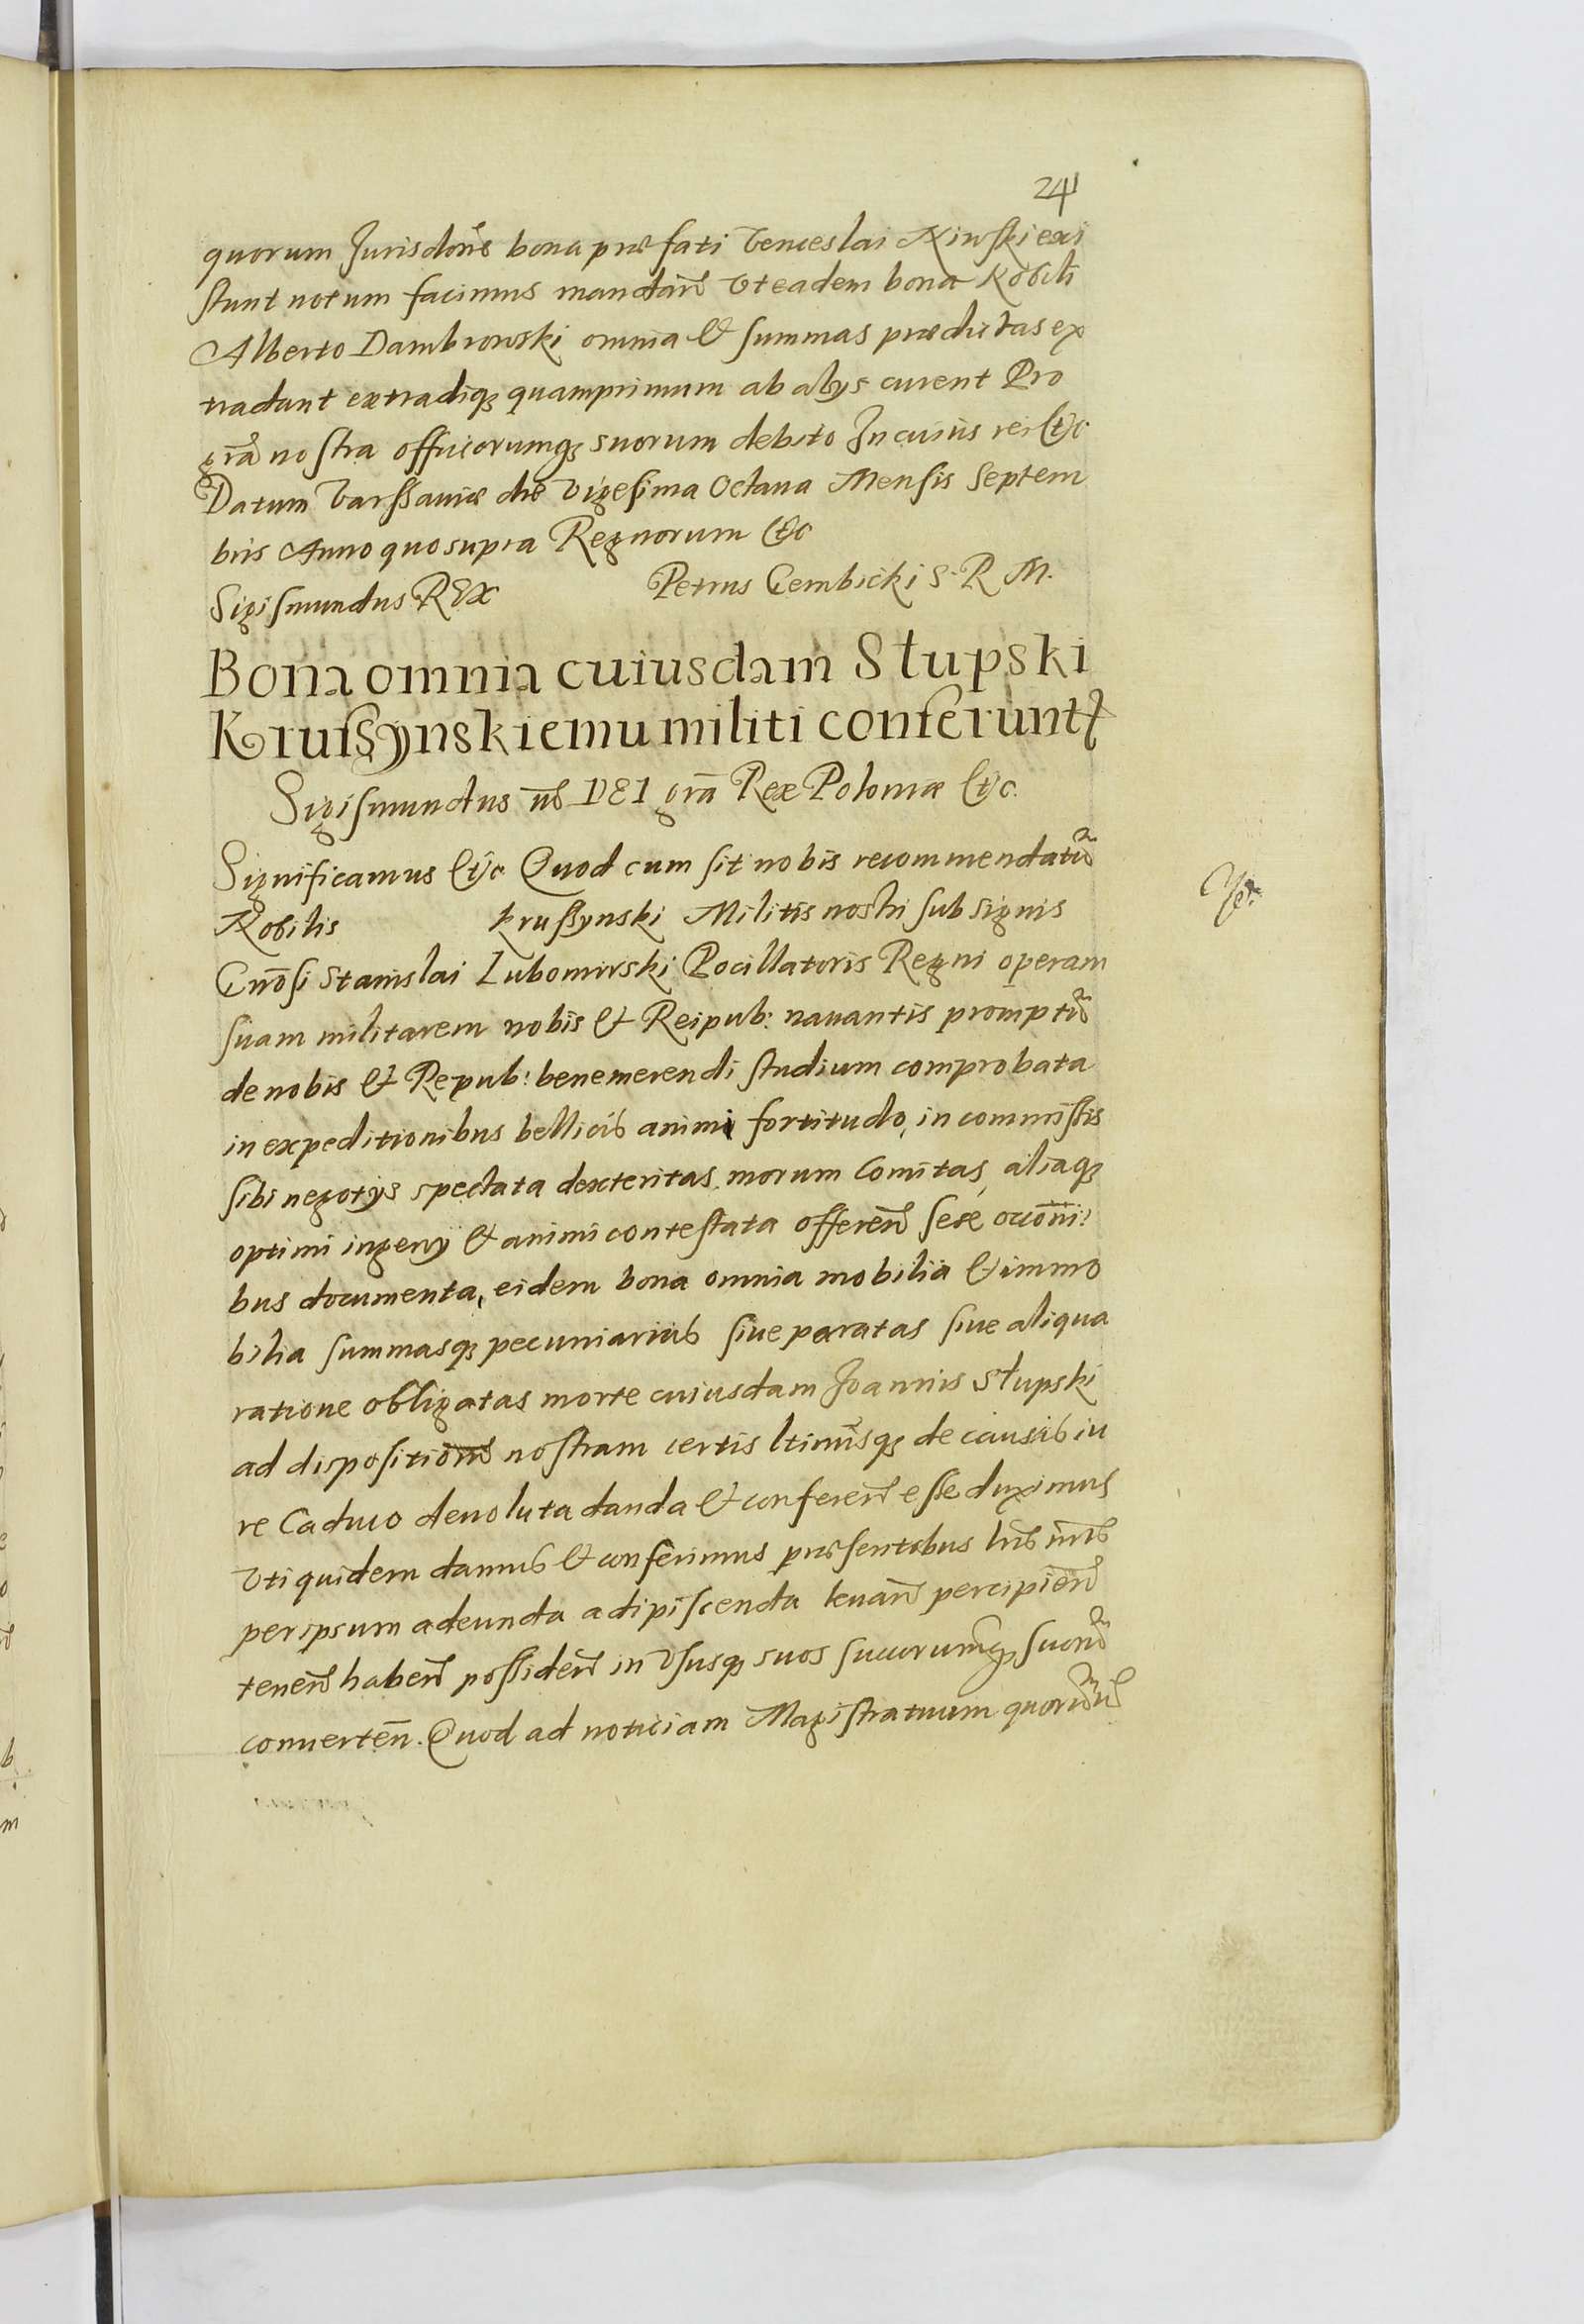 241
quorum Jurisdone bona præfati Venceslai Kinski exi
stunt notum facimus mandan̄ vt eadem bona Nobili
Alberto Dambrowski omnia & summas prædictas ex
tradant extradiq₃ quamprimum ab alys curent Pro
gr̄a nostra officiorumq₃ suorum debito In cuius rei &c
Datum Varssauiæ die Vigesima Octaua Mensis Septem
bris Anno quo supra Regnorum &c
Sigismundus REX Petrus Gembicki S. R. M.
Bona omnia cuiusdam Stupski
Krussynskiemu militi conferunt̃
Sigismundus 3us DEI gr̄a Rex Poloniæ &c.
Significamus &c Quod cum sit nobis recommendatū
Nobilis Krussynski Militis nostri sub signis
Gn̄osi Stanislai Lubomirski Pocillatoris Regni operam
suam militarem nobis & Reipub: nauantis promptū
de nobis & Repub: benemerendi studium comprobata
in expeditionibus bellicis animi fortitudo, in commissis
sibi negotys spectata dexteritas, morum Comitas, aliaq₃
optimi ingeny & animi contestata offeren̄ sese occōni:
bus documenta, eidem bona omnia mobilia & immo
bilia summasq₃ pecuniarias siue paratas siue aliqua
ratione obligatas morte cuiusdam Joannis Stupski
ad dispositionē nostram certis ltimīsq₃ de causis iu
re Caduco deuoluta danda & conferen̄ esse duximus
Vti quidem damus & conferimus præsentibus lr̄is nr̄is
per ipsum adeunda adipiscenda leuan̄ percipien̄
tenen̄ haben̄ possiden̄ in Vsusq₃ suos succorumq₃ suorū
conuerten̄. Quod ad noticiam Magistratuum quorūuis